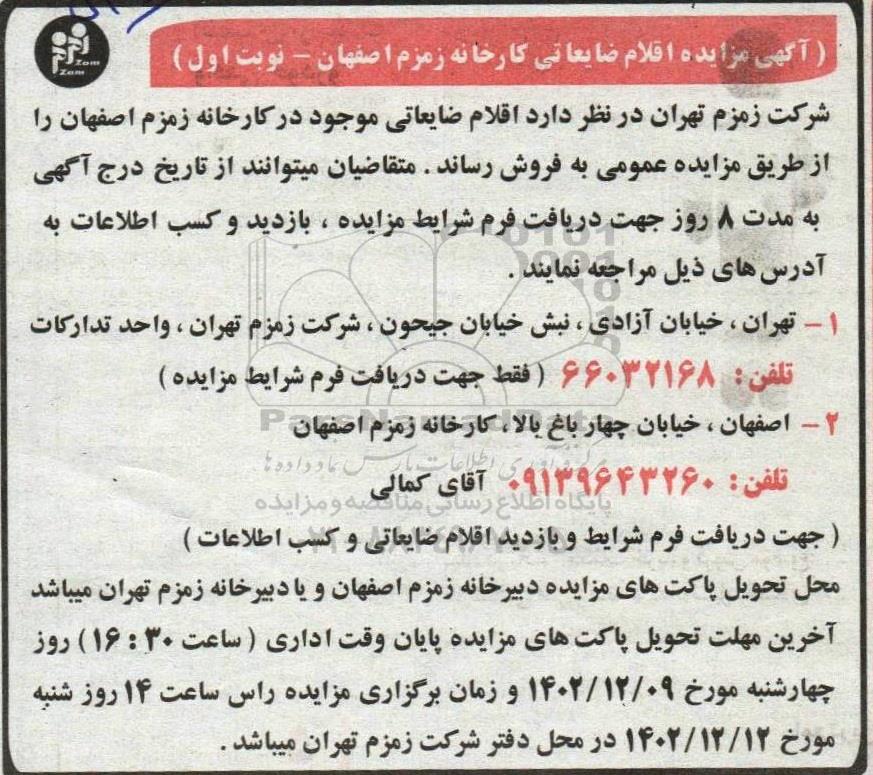 ( آگهی مزایده اقلام ضایعاتی کارخانه زمزم اصفهان – نوبت اول )
Zam Zam
شرکت زمزم تهران در نظر دارد اقلام ضایعاتی موجود در کارخانه زمزم اصفهان را
از طریق مزایده عمومی به فروش رساند . متقاضیان میتوانند از تاریخ درج آگهی
به مدت ۸ روز جهت دریافت فرم شرایط مزایده ، بازدید و کسب اطلاعات به
آدرس های ذیل مراجعه نمایند .
۱– تهران ، خیابان آزادی ، نبش خیابان جیحون ، شرکت زمزم تهران ، واحد تدارکات
تلفن : ۶۶۰۳۲۱۶۸ ( فقط جهت دریافت فرم شرایط مزایده )
۲– اصفهان ، خیابان چهار باغ بالا ، کارخانه زمزم اصفهان
ParsNamadData
مرکز فرآوری اطلاعات پارس نماد داده ها
تلفن : ۰۹۱۳۹۶۴۳۲۶۰ آقای کمالی
پایگاه اطلاع رسانی مناقصه و مزایده
( جهت دریافت فرم شرایط و بازدید اقلام ضایعاتی و کسب اطلاعات )
محل تحویل پاکت های مزایده دبیرخانه زمزم اصفهان و یا دبیرخانه زمزم تهران میباشد
آخرین مهلت تحویل پاکت های مزایده پایان وقت اداری ( ساعت ۳۰ : ۱۶ ) روز
چهارشنبه مورخ ۱۴۰۲/۱۲/۰۹ و زمان برگزاری مزایده راس ساعت ۱۴ روز شنبه
مورخ ۱۴۰۲/۱۲/۱۲ در محل دفتر شرکت زمزم تهران میباشد .